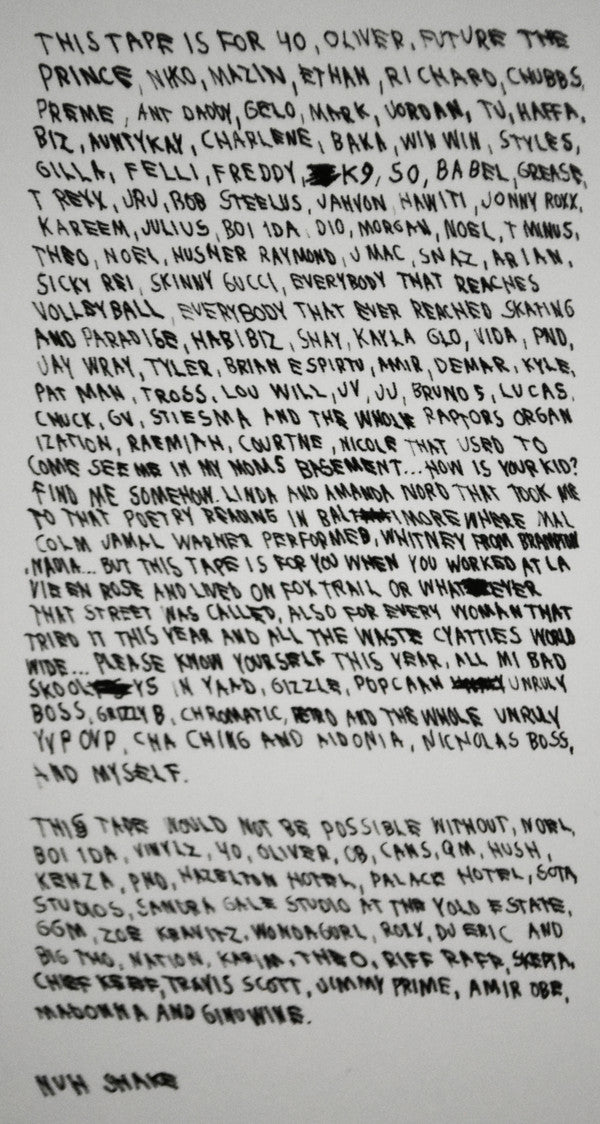 THIS TAPE IS FOR 40, OLIVER, FUTURE THE
PRINCE, NIKO, MAZIN, ETHAN, RICHARD, CHUBBS,
PREME, ANT DADDY, GELO, MARK, JORDAN, TJ, HAFFA,
BIZ, AUNTYKAY, CHARLENE, BAKA, WIN WIN, STYLES,
GILLA, FELLI, FREDDY, K9, SO, BABEL, GREASE,
T REXX, URU, ROB STEELUS, JAHVON, HAWITI, JONNY ROXX,
KAREEM, JULIUS, BOI 1DA, DIO, MORGAN, NOEL, T MINUS,
THEO, NOEL, HUSHER RAYMOND, J MAC, SNAZ, ARIAN,
SICKY REI, SKINNY GUCCI, EVERYBODY THAT REACHES
VOLLEYBALL, EVERYBODY THAT EVER REACHED SKATING
AND PARADISE, HABIBIZ, SHAY, KAYLA GLO, VIDA, PND,
JAY WRAY, TYLER, BRIAN ESPIRTU, AMIR, DEMAR, KYLE,
PAT MAN, TROSS, LOU WILL, JV, JJ, BRUNO 5, LUCAS,
CHUCK, GV, STIESMA AND THE WHOLE RAPTORS ORGAN
IZATION, RAEMIAH, COURTNE, NICOLE THAT USED TO
COME SEE ME IN MY MOMS BASEMENT... HOW IS YOUR KID?
FIND ME SOMEHOW. LINDA AND AMANDA NORD THAT TOOK ME
TO THAT POETRY READING IN BALTIMORE WHERE MAL
COLM JAMAL WARNER PERFORMED, WHITNEY FROM BRAMPTON
, NADIA... BUT THIS TAPE IS FOR YOU WHEN YOU WORKED AT LA
VIE EN ROSE AND LIVED ON FOXTRAIL OR WHATEVER
THAT STREET WAS CALLED, ALSO FOR EVERY WOMAN THAT
TRIED IT THIS YEAR AND ALL THE WASTE CYATTIES WORLD
WIDE... PLEASE KNOW YOURSELF THIS YEAR, ALL MI BAD
SKOOL YS IN YAAD, GIZZLE, POPCAAN UNRULY
BOSS, GRIZZLY B, CHROMATIC, RETRO AND THE WHOLE UNRULY
YVP OVP, CHA CHING AND AIDONIA, NICHOLAS BOSS,
AND MYSELF.

THIS TAPE WOULD NOT BE POSSIBLE WITHOUT, NOEL,
BOI 1DA, VINYLZ, 40, OLIVER, CB, CAMS, QM, HUSH,
KENZA, PND, HAZELTON HOTEL, PALACE HOTEL, SOTA
STUDIOS, SANDRA GALE STUDIO AT THE YOLO ESTATE,
GGM, ZOE KRAVITZ, WONDAGURL, ROXY, DJ ERIC AND
BIG THO, NATION, KARIM, THEO, RIFF RAFF, SKEPTA,
CHIEF KEEF, TRAVIS SCOTT, JIMMY PRIME, AMIR OBE,
MADONNA AND GINUWINE.

NUH SHAKE